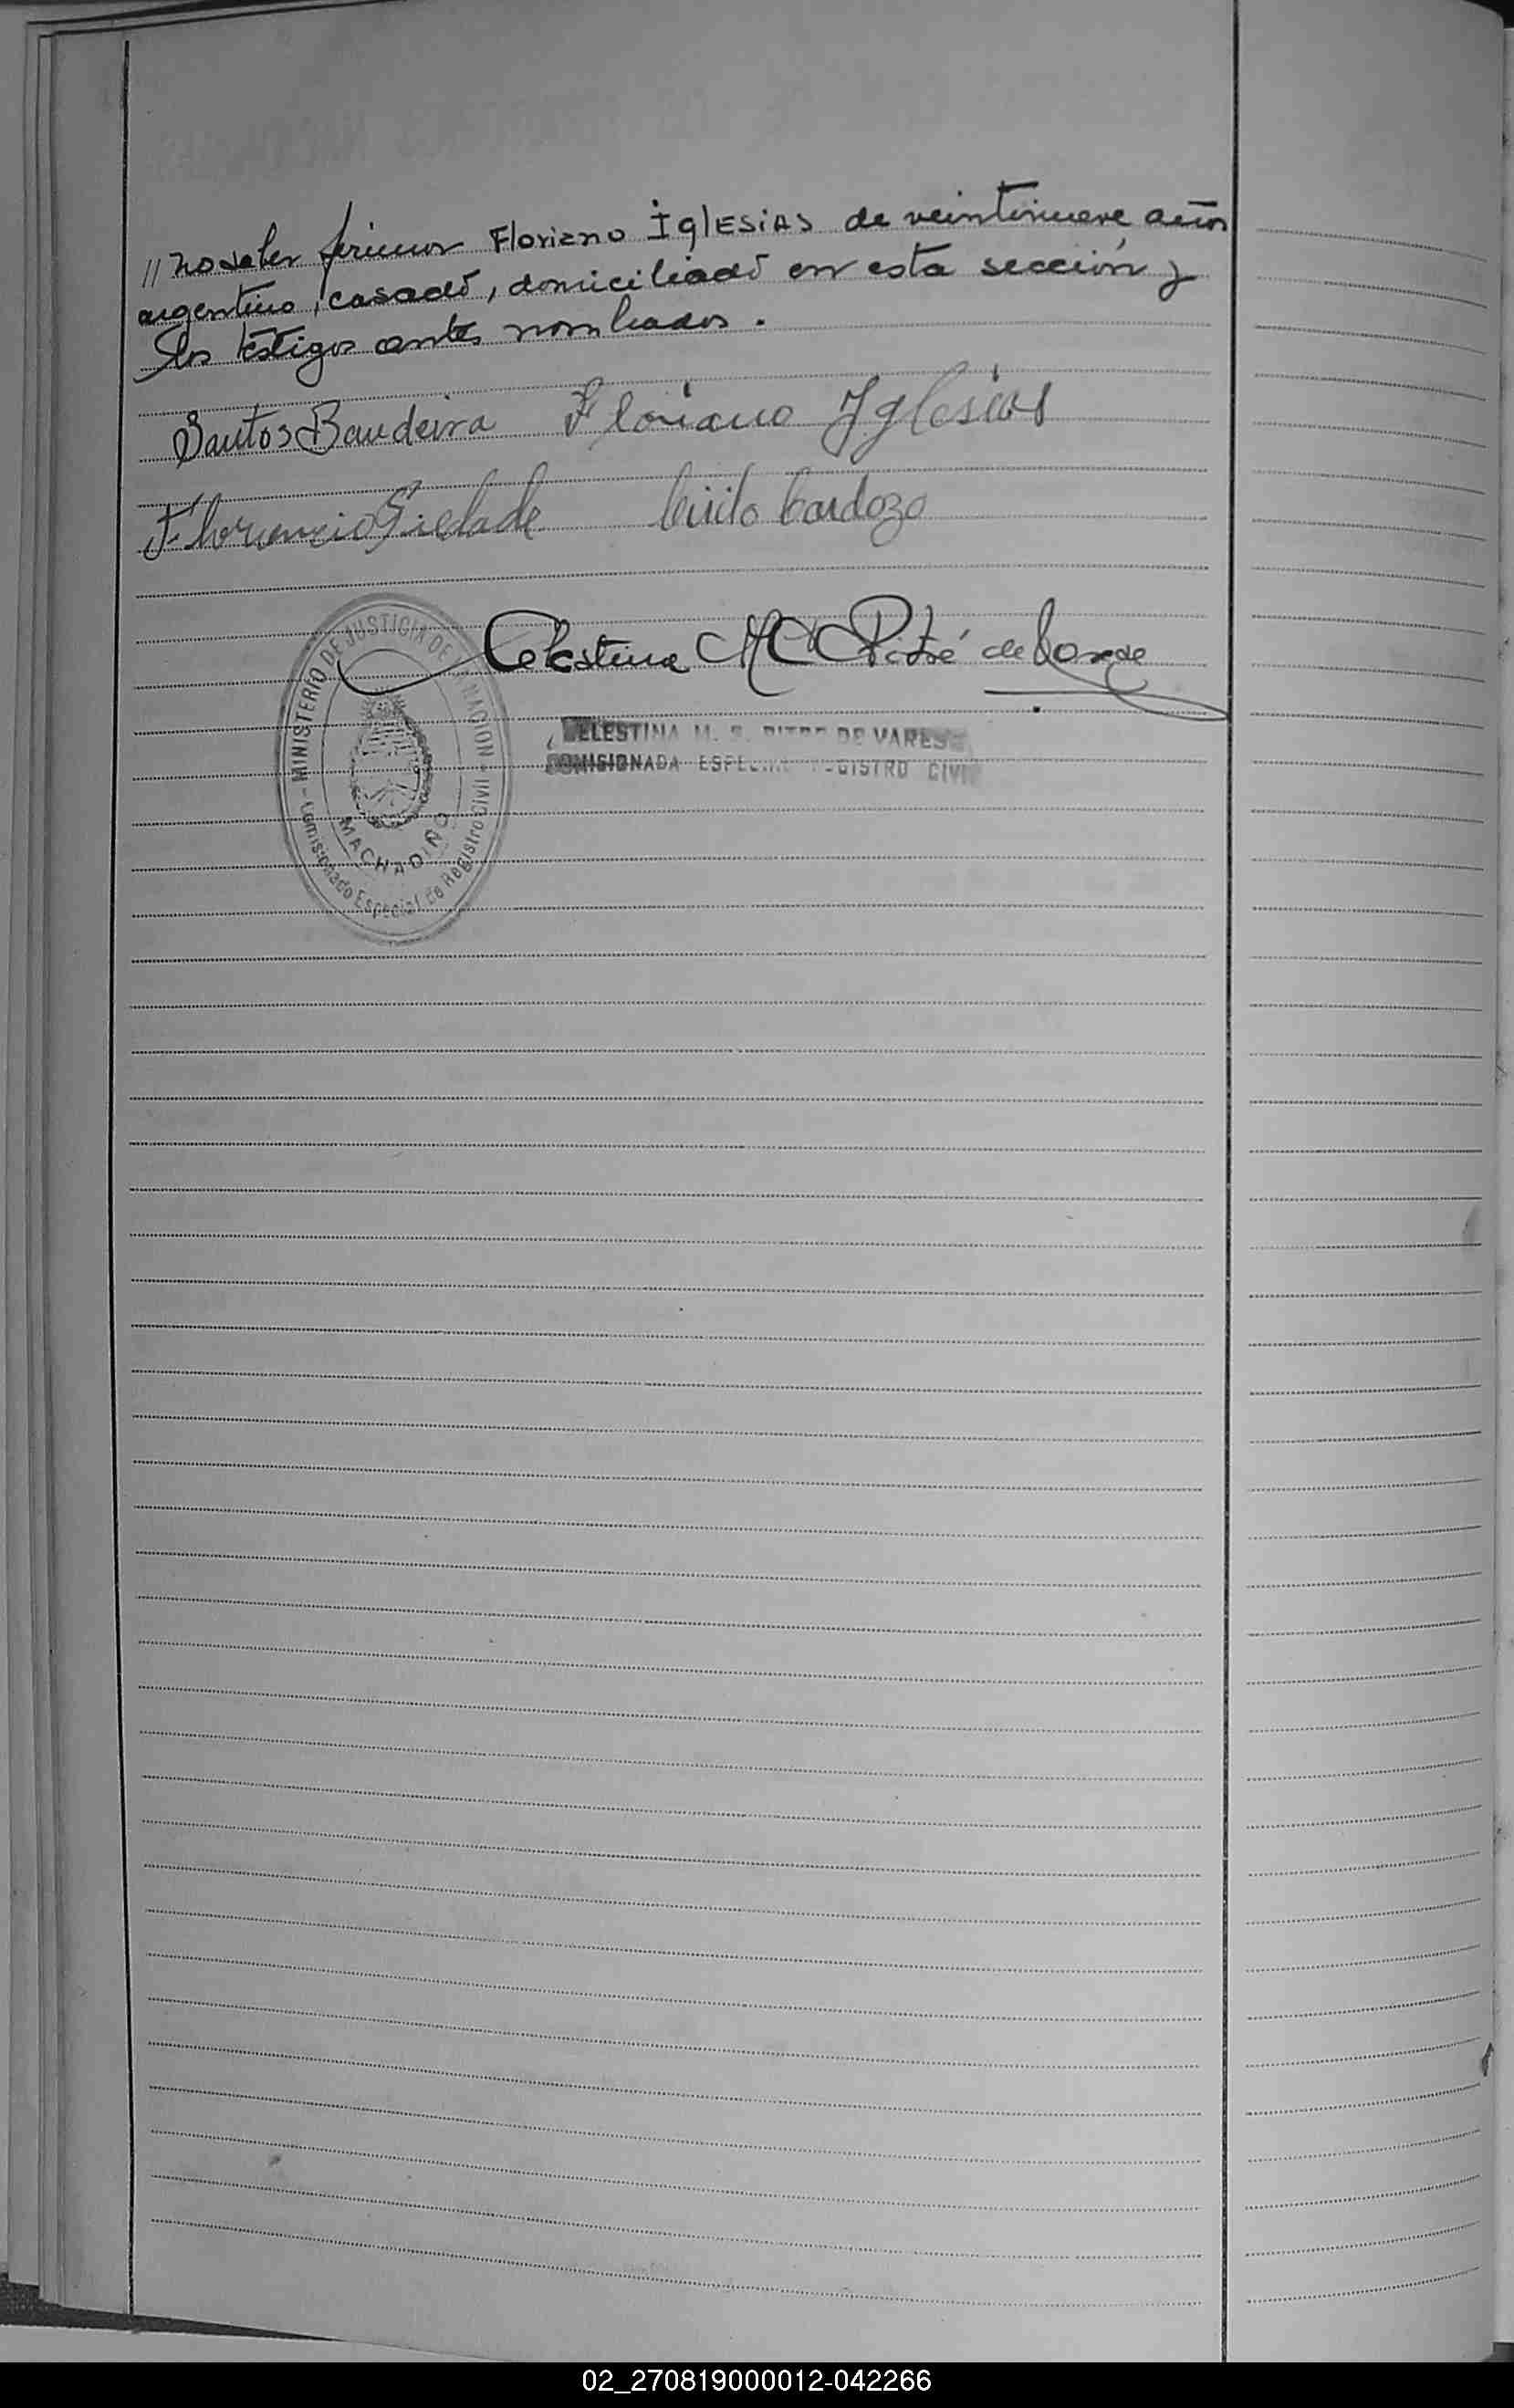 // no saber firmar Floriano IglEsiAs de veintinueve años
argentino, casado, domiciliado en esta sección y
los testigos antes nombrados.
Santos Bandeira Floriano Yglesias
Florencio Cirilo Cardozo
Celestina M Pitré de
MINISTERIO DE JUSTICIA DE NACION
Comisionado Especial de Registro Civil
MACHADINO
CELESTINA M. S. PITRE DE VARES
COMISIONADA ESPECIAL REGISTRO CIVIL
02_270819000012-042266